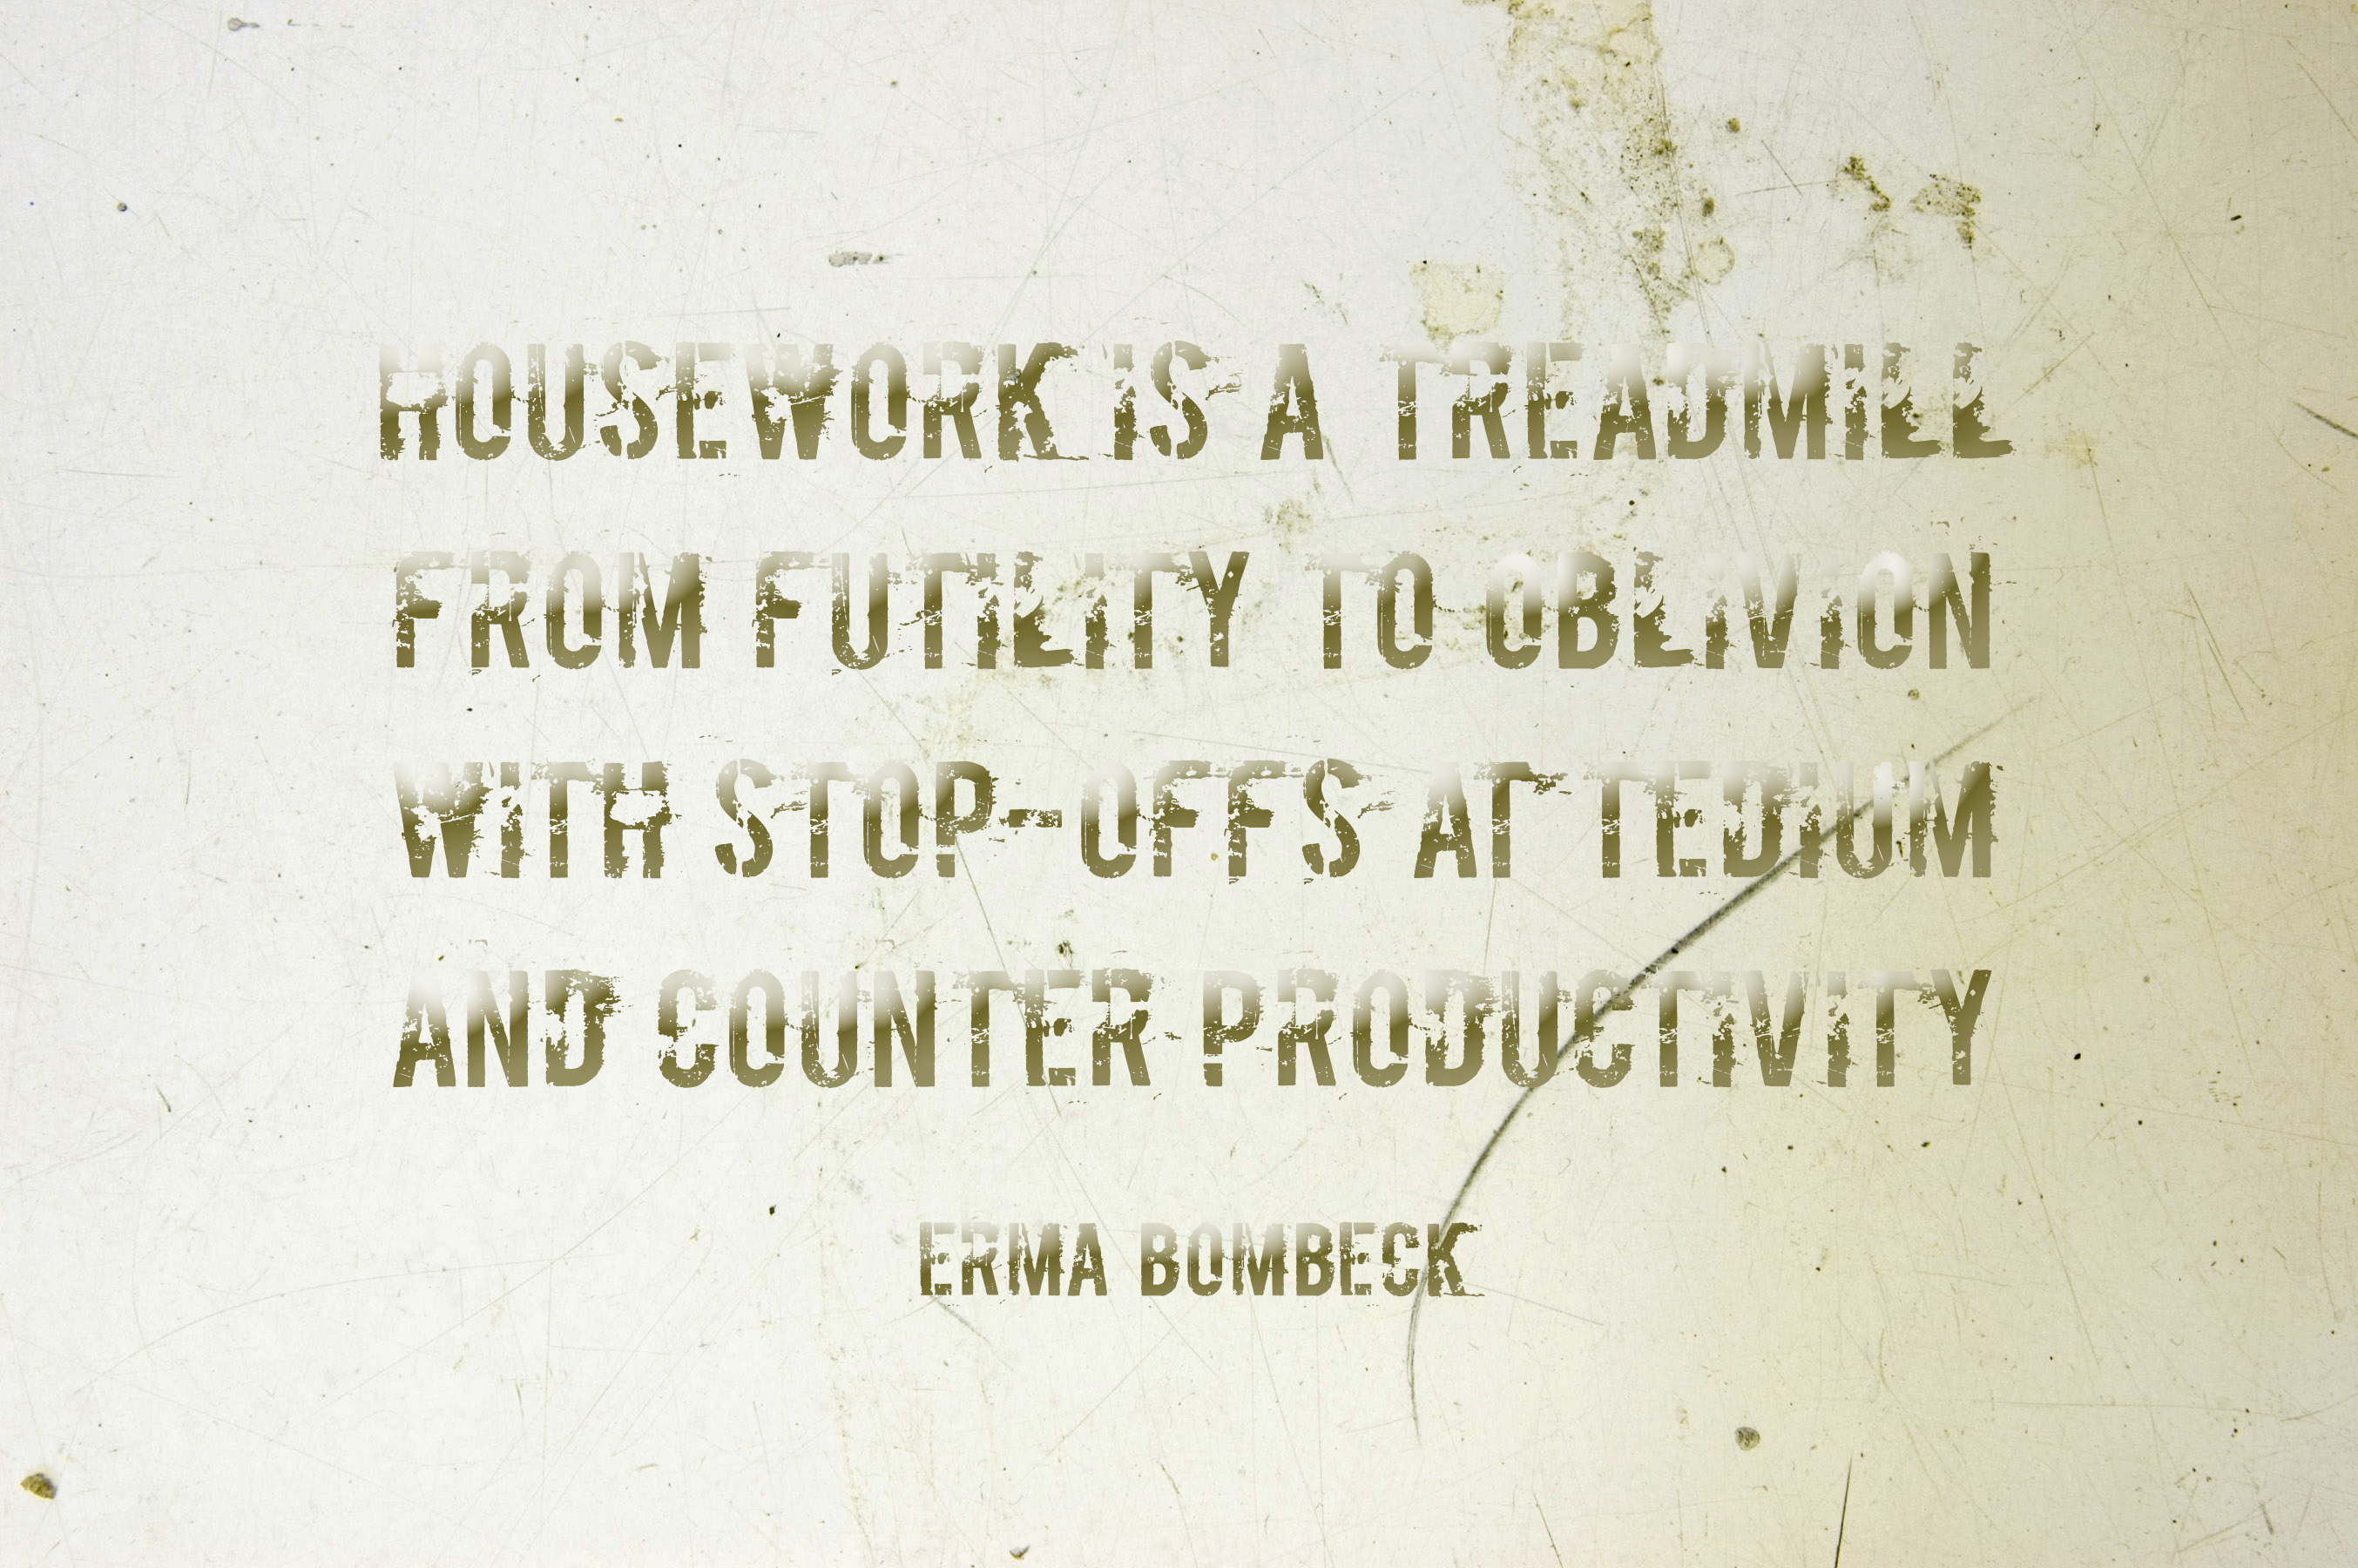 HOUSEWORK IS A TREADMILL
FROM FUTILITY TO OBLIVION
WITH STOP-OFFS AT TEDIUM
AND COUNTER PRODUCTIVITY
ERMA BOMBECK